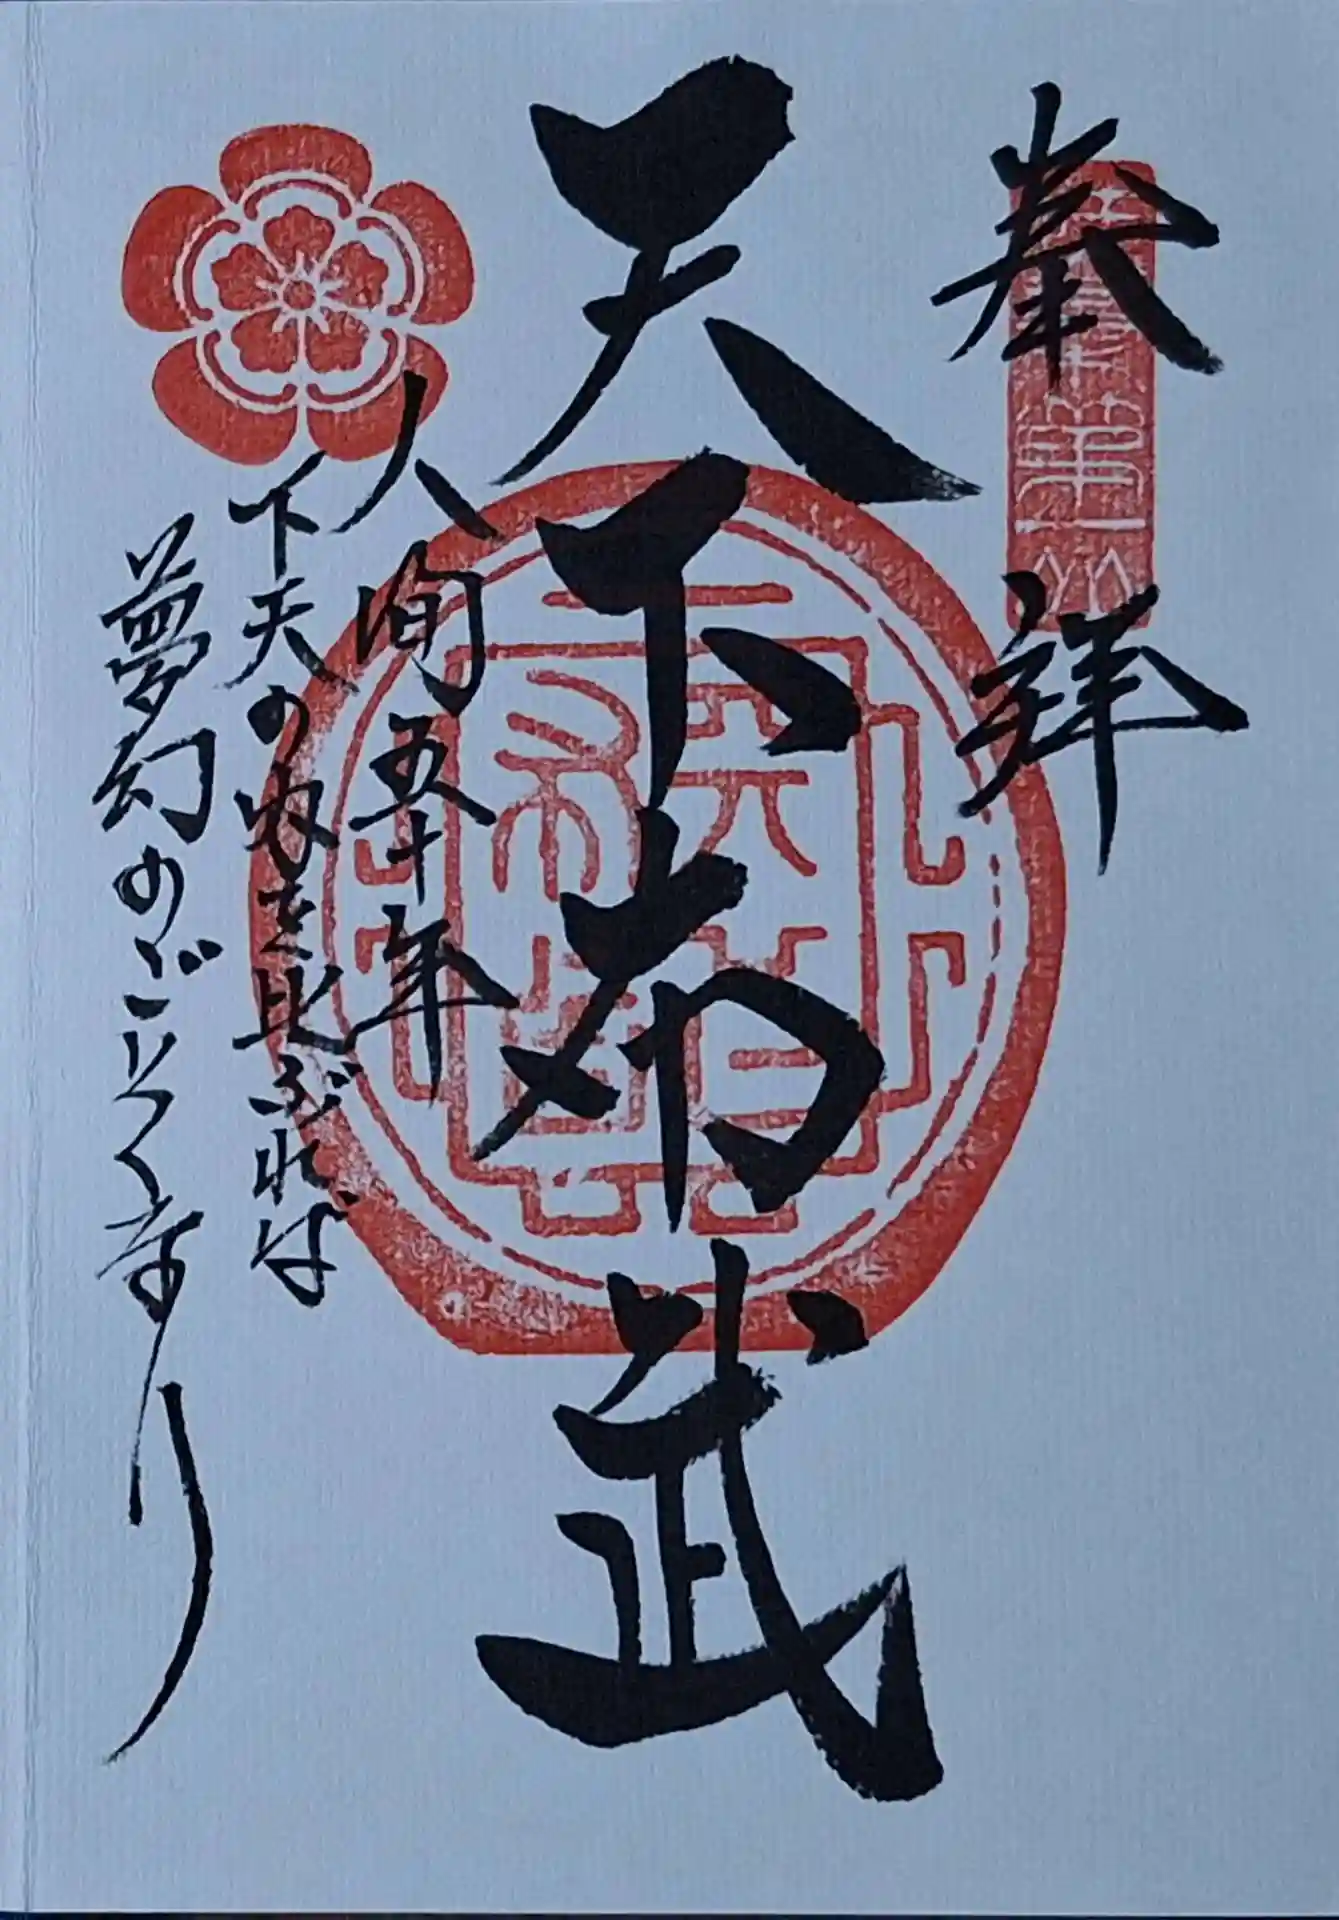 奉拝
天下布武
人間五十年
下天の内を比ぶれば
夢幻のごとくなり